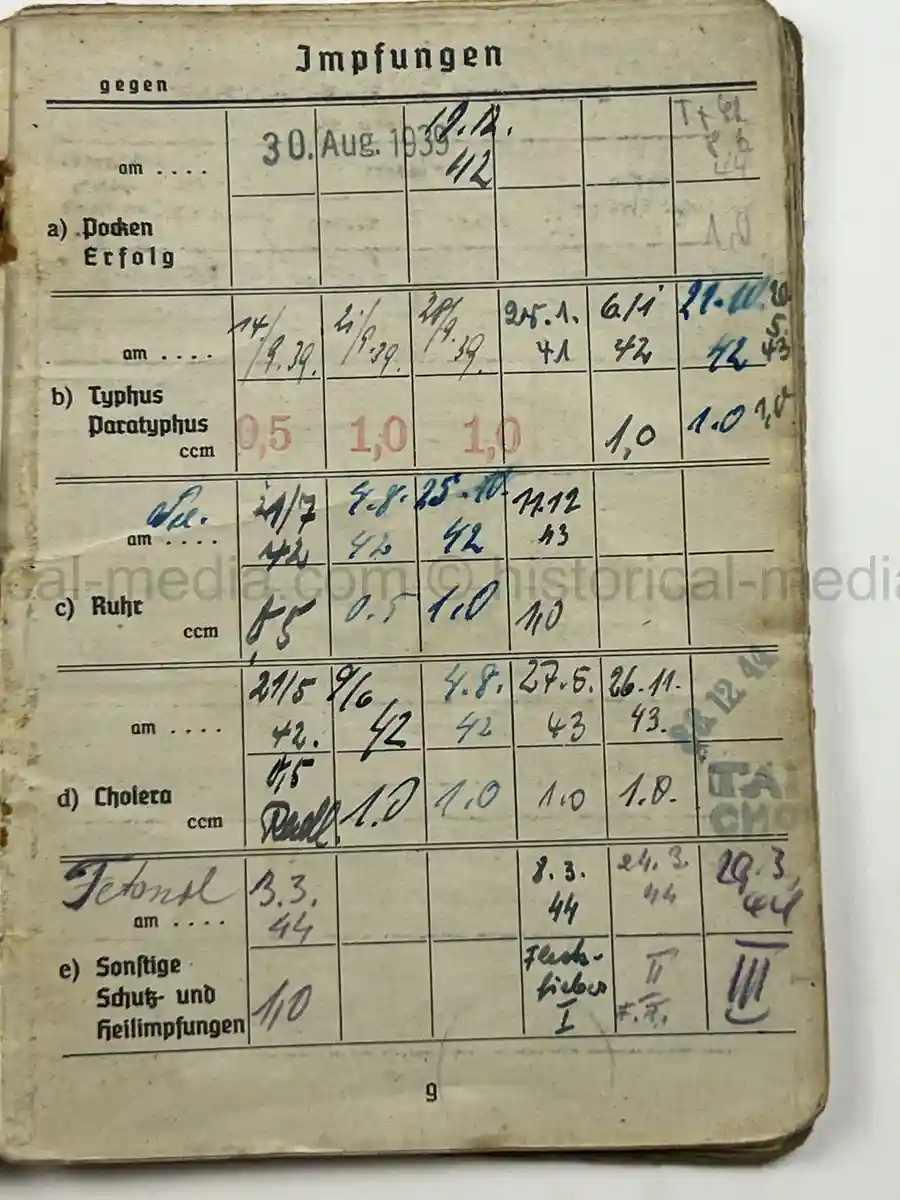 Impfungen
gegen
30. Aug. 1939 18.12. 42
am . . . .
44
1,0
a) Pocken
Erfolg
14/9.39. 21/9.39. 28/9.39. 25.1. 41 6/1 42 21.10. 42 20. 5. 43
am . . . .
b) Typhus
Paratyphus
ccm
0,5 1,0 1,0 1,0 1.0 1,0
21/7 42 4.8. 42 25.10. 42 11.12 43
am . . . .
c) Ruhr
ccm
0,5 0.5 1.0 1,0
21/5 42. 9/6 42 4.8. 42 27.5. 43 26.11. 43.
am . . . .
d) Cholera
ccm
0,5 1.0 1.0 1.0 1.0.
Tetanol 13.3. 44 8.3. 44 24.3. 44 29.3. 44
am . . . .
e) Sonstige
Schutz- und
Heilimpfungen
1,0 Fleckfieber I II III
9
cal-media.com © historical-media